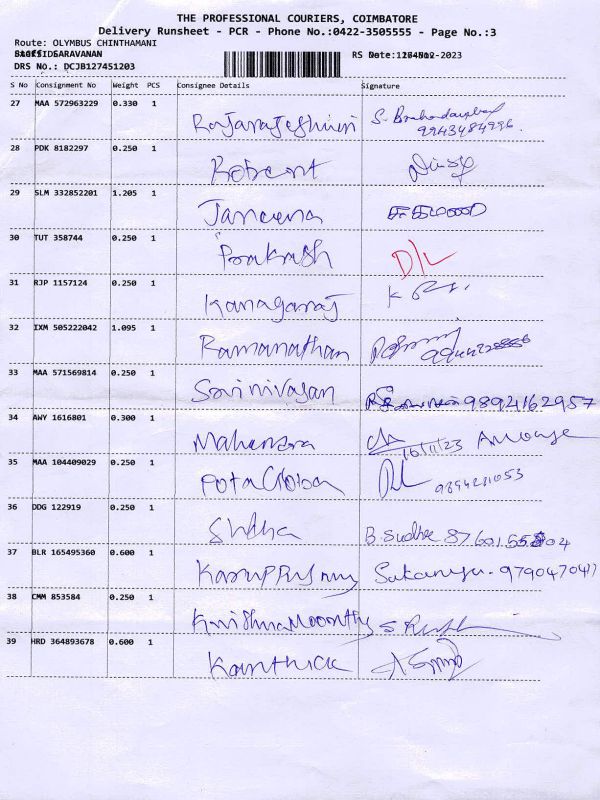 THE PROFESSIONAL COURIERS, COIMBATORE
Delivery Runsheet - PCR - Phone No.:0422-3505555 - Page No.:3
Route: OLYMBUS CHINTHAMANI
SARAVANAN
RS
DRS No.: DCJB127451203
S No Consignment No Weight PCS Consignee Details Signature
27 MAA 572963229 0.330 1 Rajarajeshwari S.
9943484996.
28 PDK 8182297 0.250 1
29 SLM 332852201 1.205 1
30 TUT 358744 0.250 1 Prakash D/L
31 RJP 1157124 0.250 1 Kanagaraj K
32 IXM 505222042 1.095 1 Ramanathan
33 MAA 571569814 0.250 1 Srinivasan 9894162957
34 AWY 1616801 0.300 1 Mahendra
16/11/23
35 MAA 104409029 0.250 1 9894281053
36 DDG 122919 0.250 1 Sudha B. Sudha
37 BLR 165495360 0.600 1 Karuppusamy Sukanya. 9790470417
38 CMM 853584 0.250 1 Krishnamoorthy S
39 HRD 364893678 0.600 1 Karthick